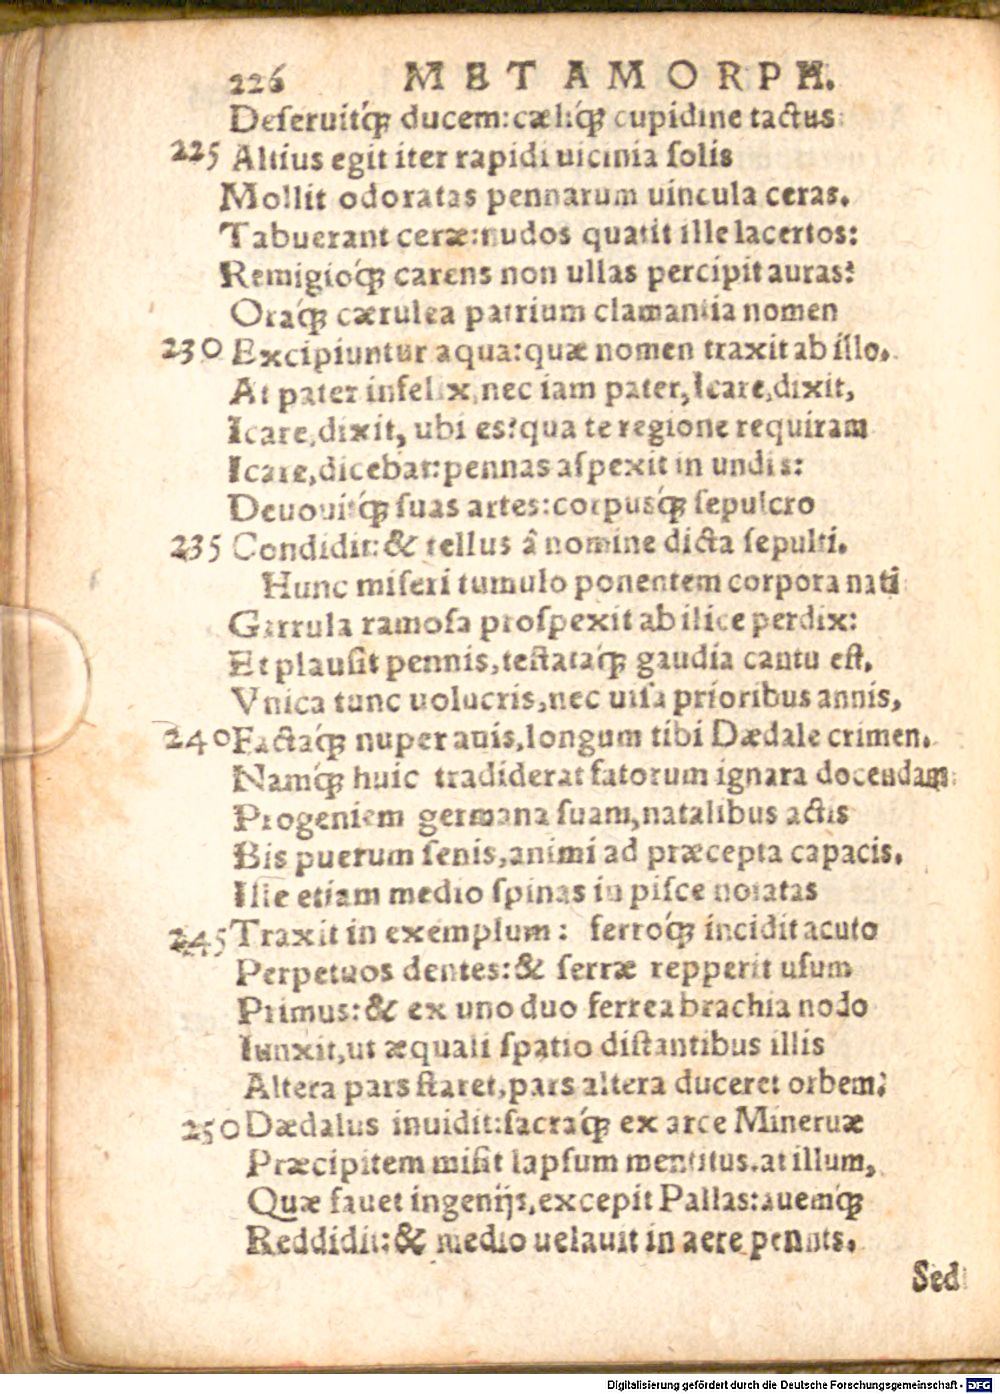 226 METAMORPH.
Deseruitq́ꝫ ducem: cæliq́ꝫ cupidine tactus
225 Altius egit iter rapidi uicinia solis
Mollit odoratas pennarum uincula ceras.
Tabuerant ceræ: nudos quatit ille lacertos:
Remigioq́ꝫ carens non ullas percipit auras:
Oraq́ꝫ cærulea patrium clamantia nomen
230 Excipiuntur aqua: quæ nomen traxit ab illo.
At pater infelix, nec iam pater, Icare, dixit,
Icare, dixit, ubi es? qua te regione requiram
Icare, dicebat: pennas aspexit in undis:
Deuouitq́ꝫ suas artes: corpusq́ꝫ sepulcro
235 Condidit: & tellus â nomine dicta sepulti.
Hunc miseri tumulo ponentem corpora nati
Garrula ramosa prospexit ab ilice perdix:
Et plausit pennis, testataq́ꝫ gaudia cantu est,
Vnica tunc uolucris, nec uisa prioribus annis,
240 Factaq́ꝫ nuper auis, longum tibi Dædale crimen.
Namq́ꝫ huic tradiderat fatorum ignara docendam
Progeniem germana suam, natalibus actis
Bis puerum senis, animi ad præcepta capacis.
Ille etiam medio spinas in pisce notatas
245 Traxit in exemplum: ferroq́ꝫ incidit acuto
Perpetuos dentes: & serræ repperit usum
Primus: & ex uno duo ferrea brachia nodo
Iunxit, ut æquali spatio distantibus illis
Altera pars staret, pars altera duceret orbem:
250 Dædalus inuidit: sacraq́ꝫ ex arce Mineruæ
Præcipitem misit lapsum mentitus. at illum,
Quæ fauet ingenijs, excepit Pallas: auemq́ꝫ
Reddidit: & medio uelauit in aere pennis.
Sed
Digitalisierung gefördert durch die Deutsche Forschungsgemeinschaft - DFG